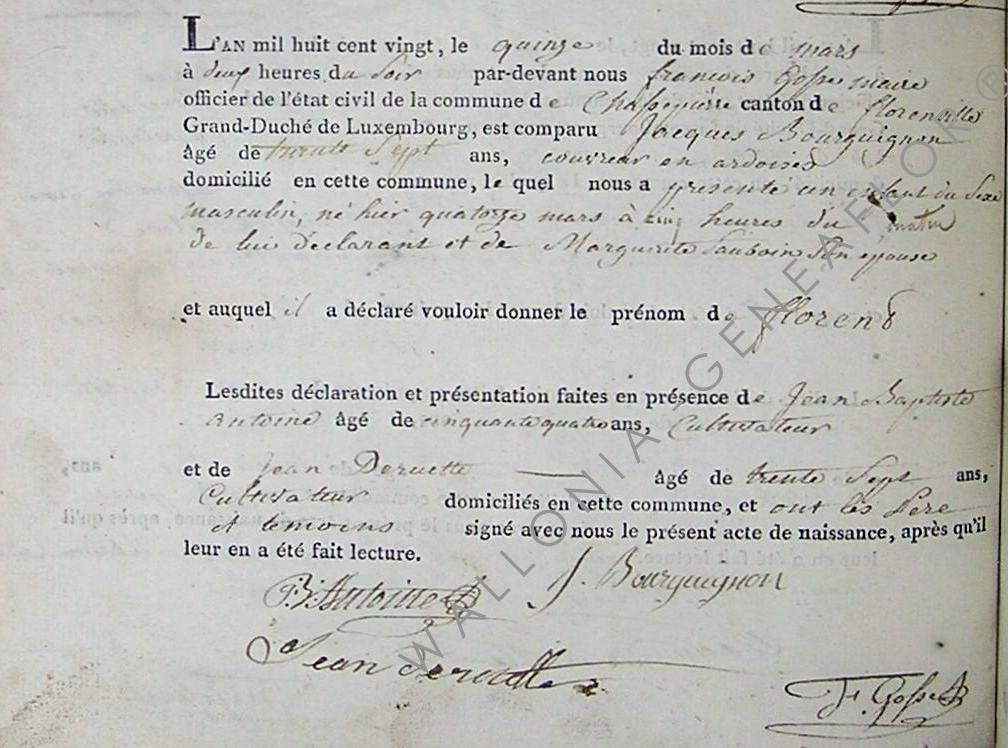 L'AN mil huit cent vingt, le quinze du mois de mars
à deux heures du soir par-devant nous francois Gosse maire
officier de l'état civil de la commune de Chassepierre canton de florenville
Grand-Duché de Luxembourg, est comparu Jacques Bourguignon
âgé de trente Sept ans, couvreur en ardoises
domicilié en cette commune, le quel nous a présenté un enfant du Sexe
masculin, né hier quatorze mars à cinq heures du matin
de lui déclarant et de Marguerite Lauboin Son épouse
et auquel il a déclaré vouloir donner le prénom de florend
Lesdites déclaration et présentation faites en présence de Jean Baptiste
antoine âgé de cinquante quatre ans, Cultivateur
et de Jean Deruette âgé de trente Sept ans,
Cultivateur domiciliés en cette commune, et ont les Père
et temoins signé avec nous le présent acte de naissance, après qu'il
leur en a été fait lecture.
J. Bourguignon
J.B. Antoine
Jean deruette
F. Gosse
WALLONIA GENEAFLOR ®